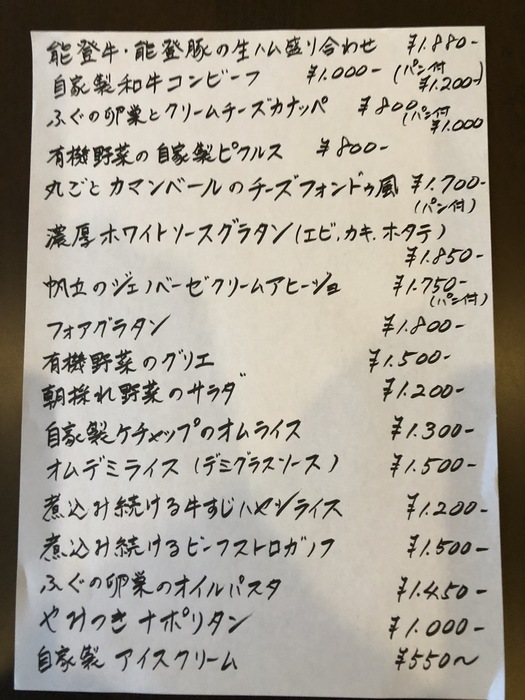 能登牛・能登豚の生ハム盛り合わせ ¥1.880-
自家製和牛コンビーフ ¥1.000- (パン付 ¥1.200-)
ふぐの卵巣とクリームチーズカナッペ ¥800 (パン付 ¥1.000
有機野菜の自家製ピクルス ¥800-
丸ごとカマンベールのチーズフォンドゥ風 ¥1.700-
(パン付)
濃厚ホワイトソースグラタン(エビ,カキ,ホタテ)
¥1.850-
帆立のジェノベーゼクリームアヒージョ ¥1.750-
(パン付)
フォアグラタン ¥1.800-
有機野菜のグリエ ¥1.500-
朝採れ野菜のサラダ ¥1.200-
自家製ケチャップのオムライス ¥1.300-
オムデミライス(デミグラスソース) ¥1.500-
煮込み続ける牛すじハヤシライス ¥1.200-
煮込み続けるビーフストロガノフ ¥1.500-
ふぐの卵巣のオイルパスタ ¥1.450-
やみつきナポリタン ¥1.000-
自家製 アイスクリーム ¥550〜